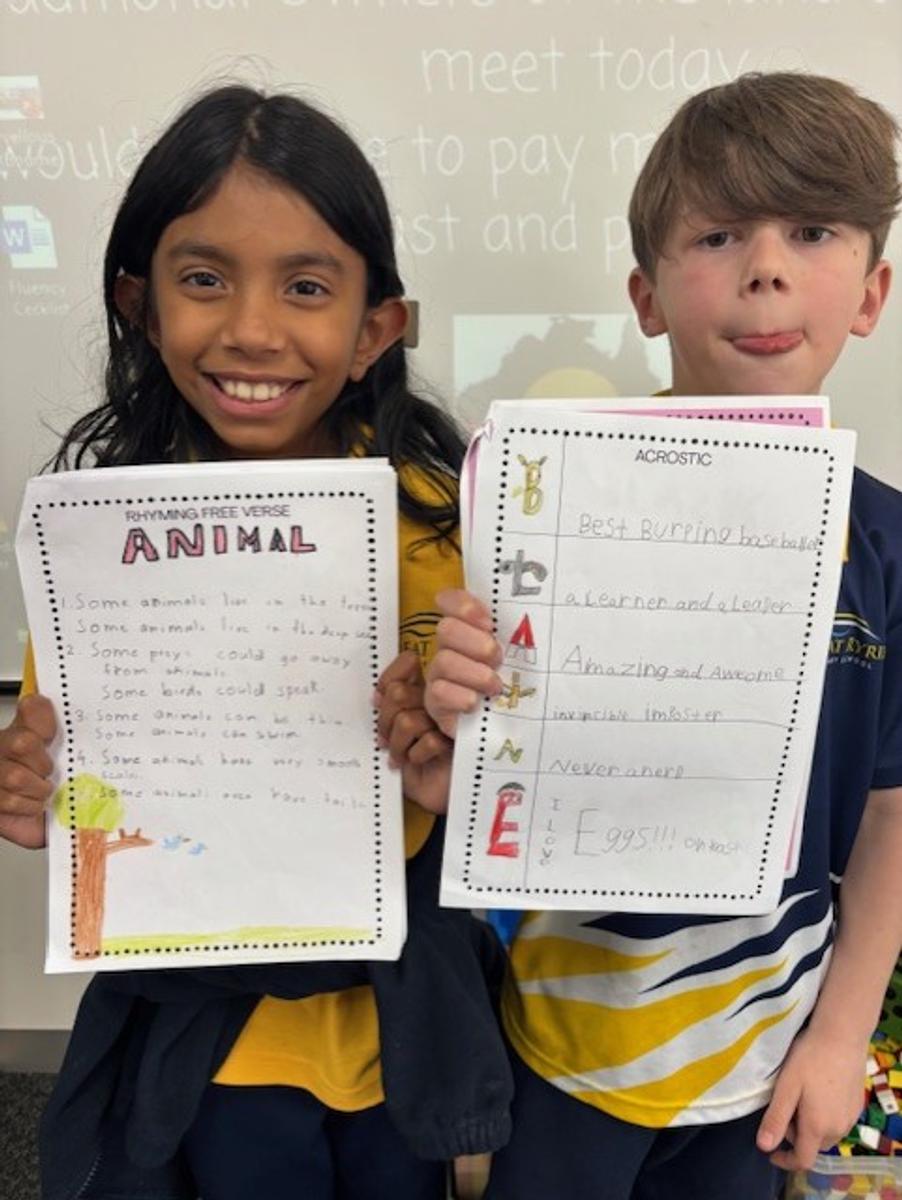 meet today
to pay
and
Fluency
W
RHYMING FREE VERSE
ANIMAL
1. Some animals live in the trees
Some animals live in the deep sea
2. Some could go away
from animals
Some birds could speak
3. Some animals can be
Some animals can swim
4. Some animals have very smooth
Some animals even have tails
ACROSTIC
B
Best Burping baseballer
L
a Learner and a Leader
A
Amazing and Awesome
I
invincible imposter
N
Never a nerd
E
I
LOVE
Eggs!!! on